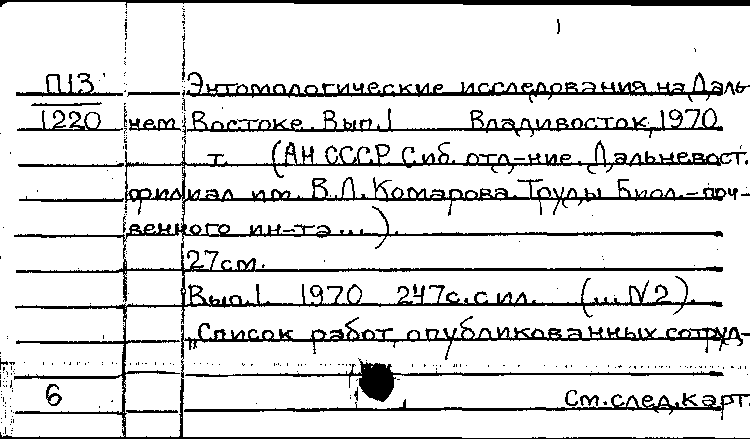 1
П13 Энтомологические исследования на Даль-
1220 нем Востоке. Вып.1 Владивосток, 1970
т. (АН СССР Сиб. отд-ние. Дальневост.
филиал им. В.Л. Комарова. Труды Биол.-поч-
венного ин-та ...).
27см.
Вып.1. 1970 247с. с ил. (... N2).
"Список работ, опубликованных сотруд-
6 См. след. карт.